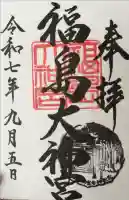 奉拝
福島大神宮
令和七年九月五日